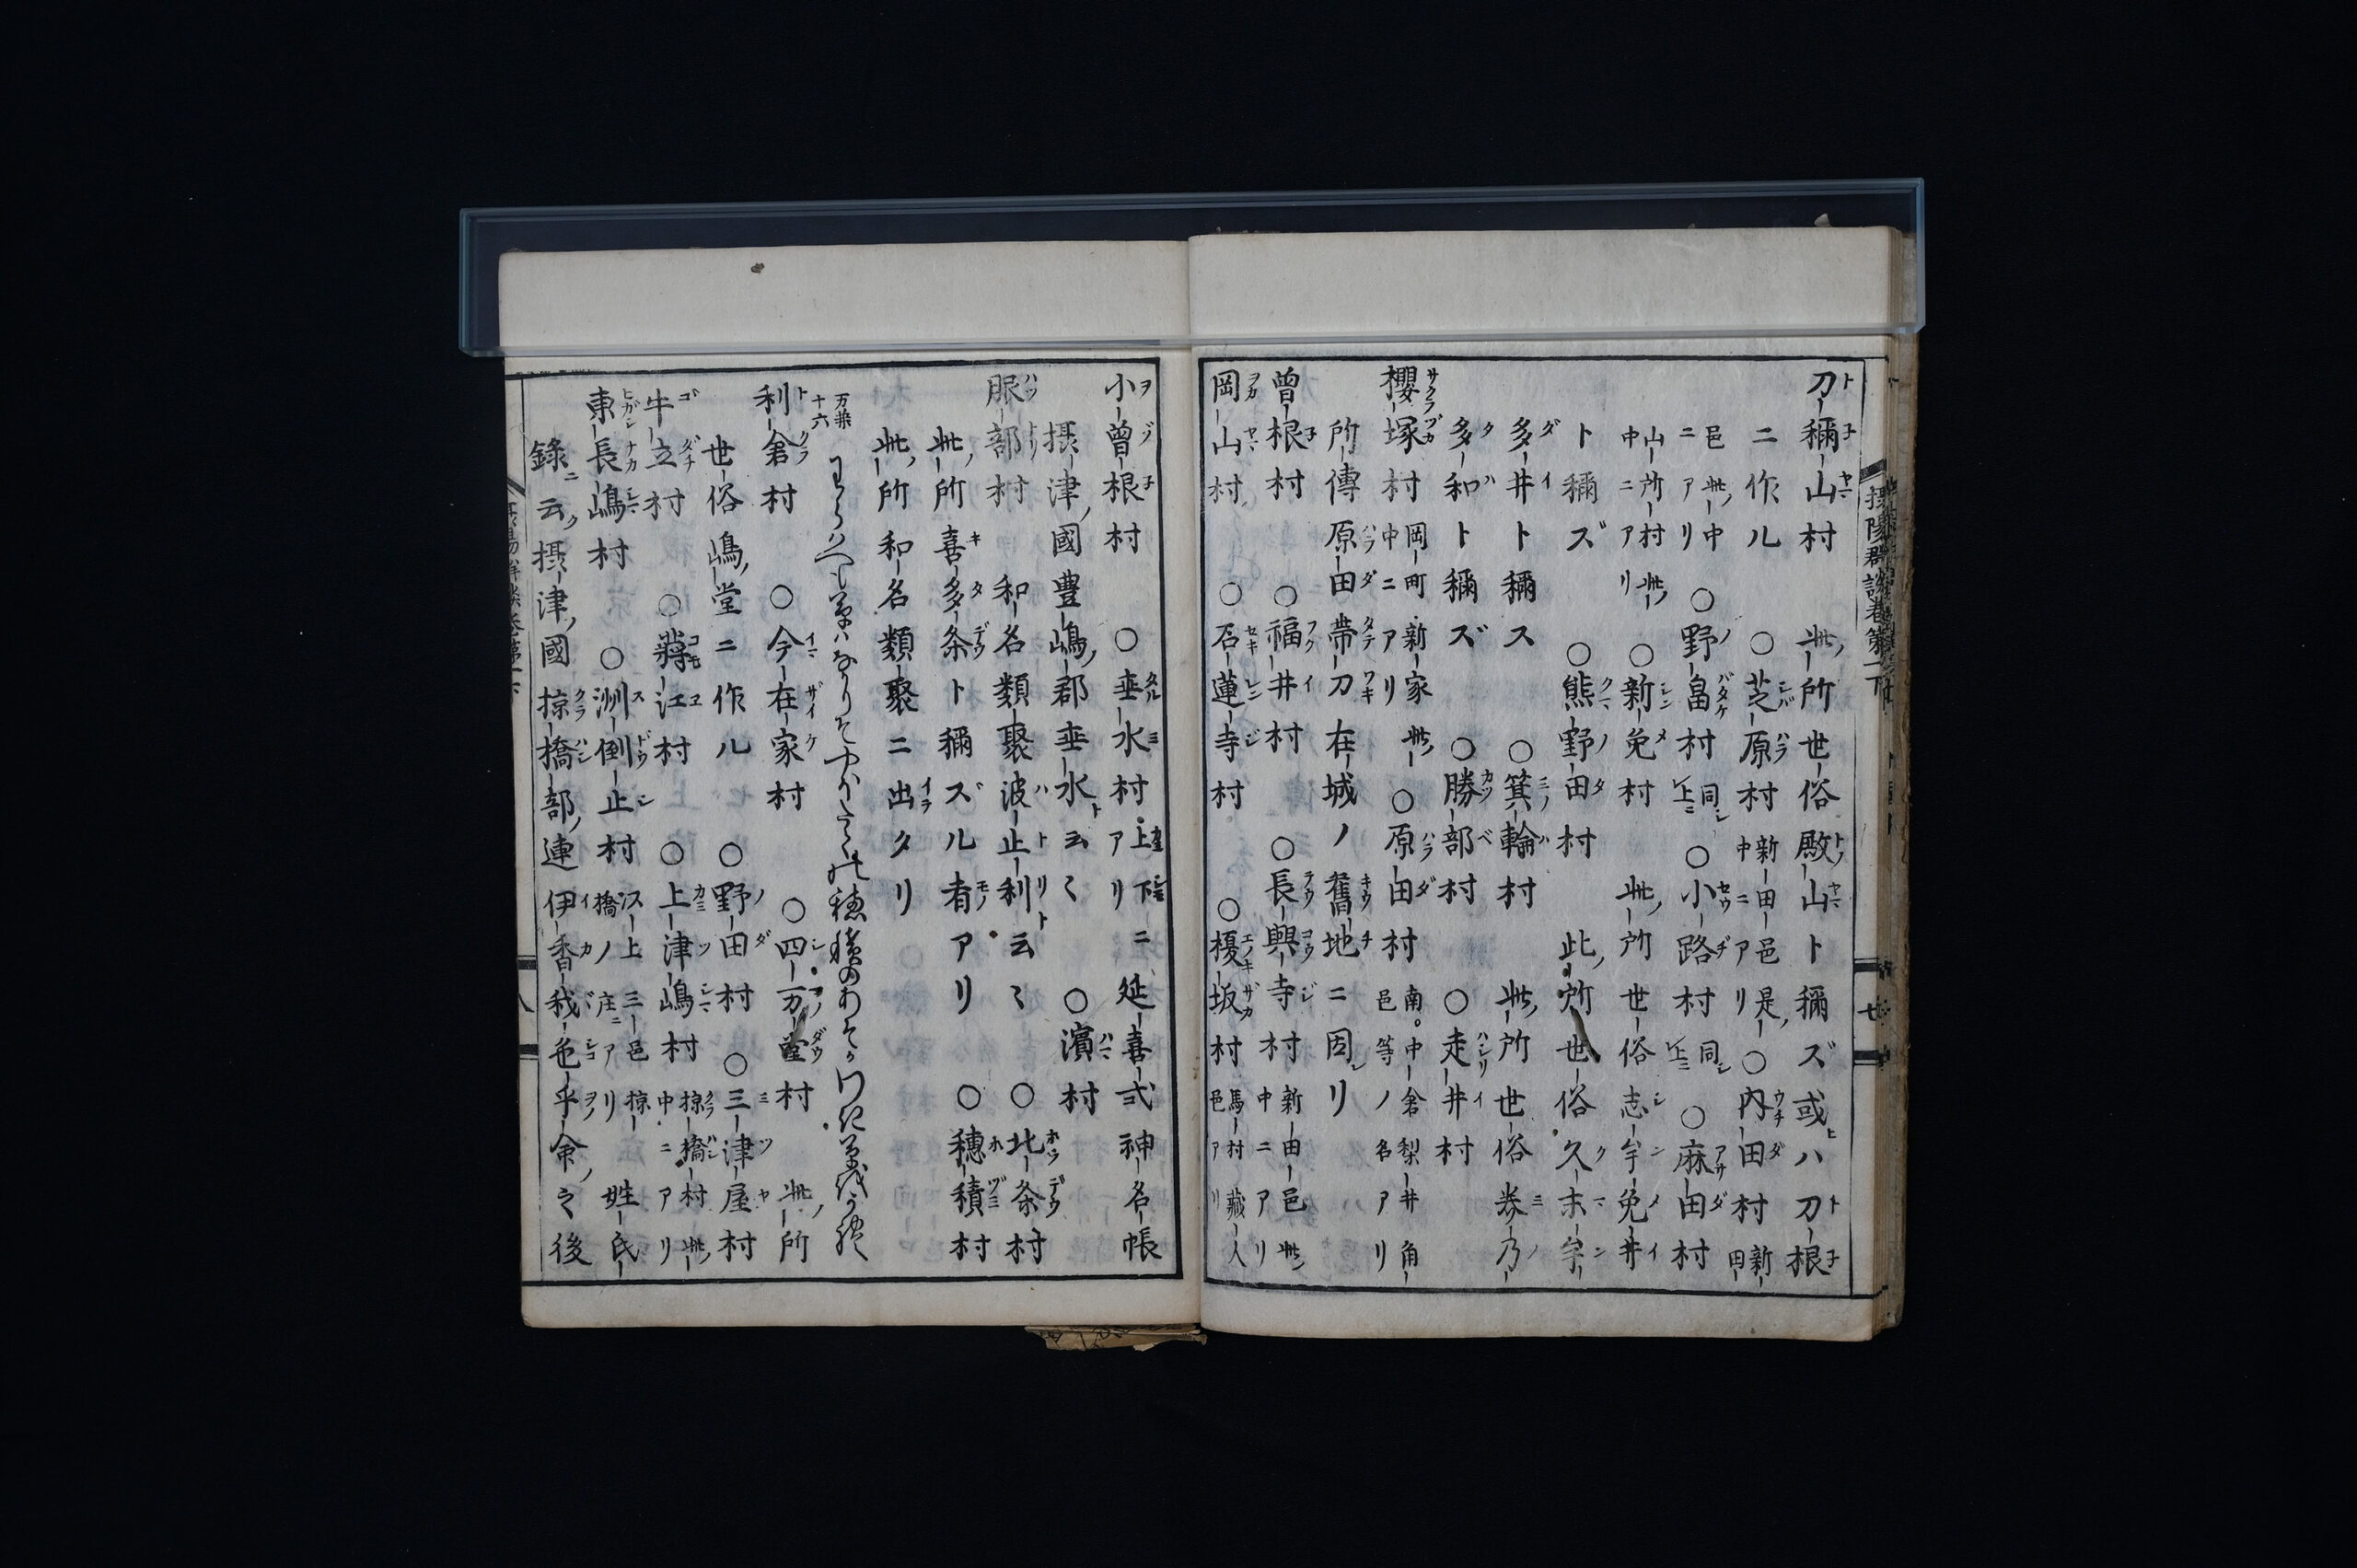 刀祢山村 此所世俗殿山ト稱ズ或ハ刀根
ニ作ル ○芝原村 新田邑是 中ニアリ ○内田村 新田
邑此中 ニアリ ○野畠村 同上 ○小路村 同上 ○麻田村
山所村此 中ニアリ ○新免村 此所世俗志牟免井
ト稱ズ ○熊野田村 此所世俗久末牟
多井ト稱ス ○箕輪村 此所世俗美乃
多和ト稱ズ ○勝部村 ○走井村
櫻塚村 岡町新家此 中ニアリ ○原田村 南中倉梨井角 邑等ノ名アリ
所傳原田帶刀在城ノ舊地ニ因リ
曽根村 ○福井村 ○長興寺村 新田邑此 中ニアリ
岡山村 ○石蓮寺村 ○榎坂村 馬村藏人 邑アリ
攝陽群談巻第一下
七
小曽根村 ○垂水村 アリニ延喜式神名帳
摂津國豊嶋郡垂水ト云々 ○濱村
服部村 和名類聚波止利ト云々 ○北条村
此所喜多条ト稱ズル者アリ ○穗積村
此所和名類聚ニ出タリ
万葉 十六
利倉村 ○今在家村 ○四万堂村 此所
世俗嶋堂ニ作ル ○野田村 ○三津屋村
牛立村 ○蒋江村 ○上津嶋村 椋橋村此 中ニアリ
東長嶋村 ○洲倒止村 三邑椋 橋ノ庄ニアリ 姓氏
錄云摂津國椋橋部連伊香我色乎命之後
八